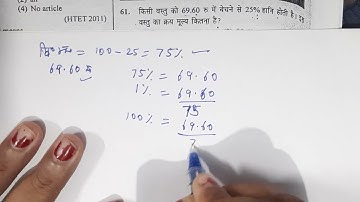 (4) No article
(HTET 2011)
61. किसी वस्तु को 69.60 रु में बेचने से 25% हानि होती है।
वस्तु का क्रय मूल्य कितना है?
= 100 - 25 = 75%
69.60 रु
75% = 69.60
1% = 69.60
75
100% = 69.60